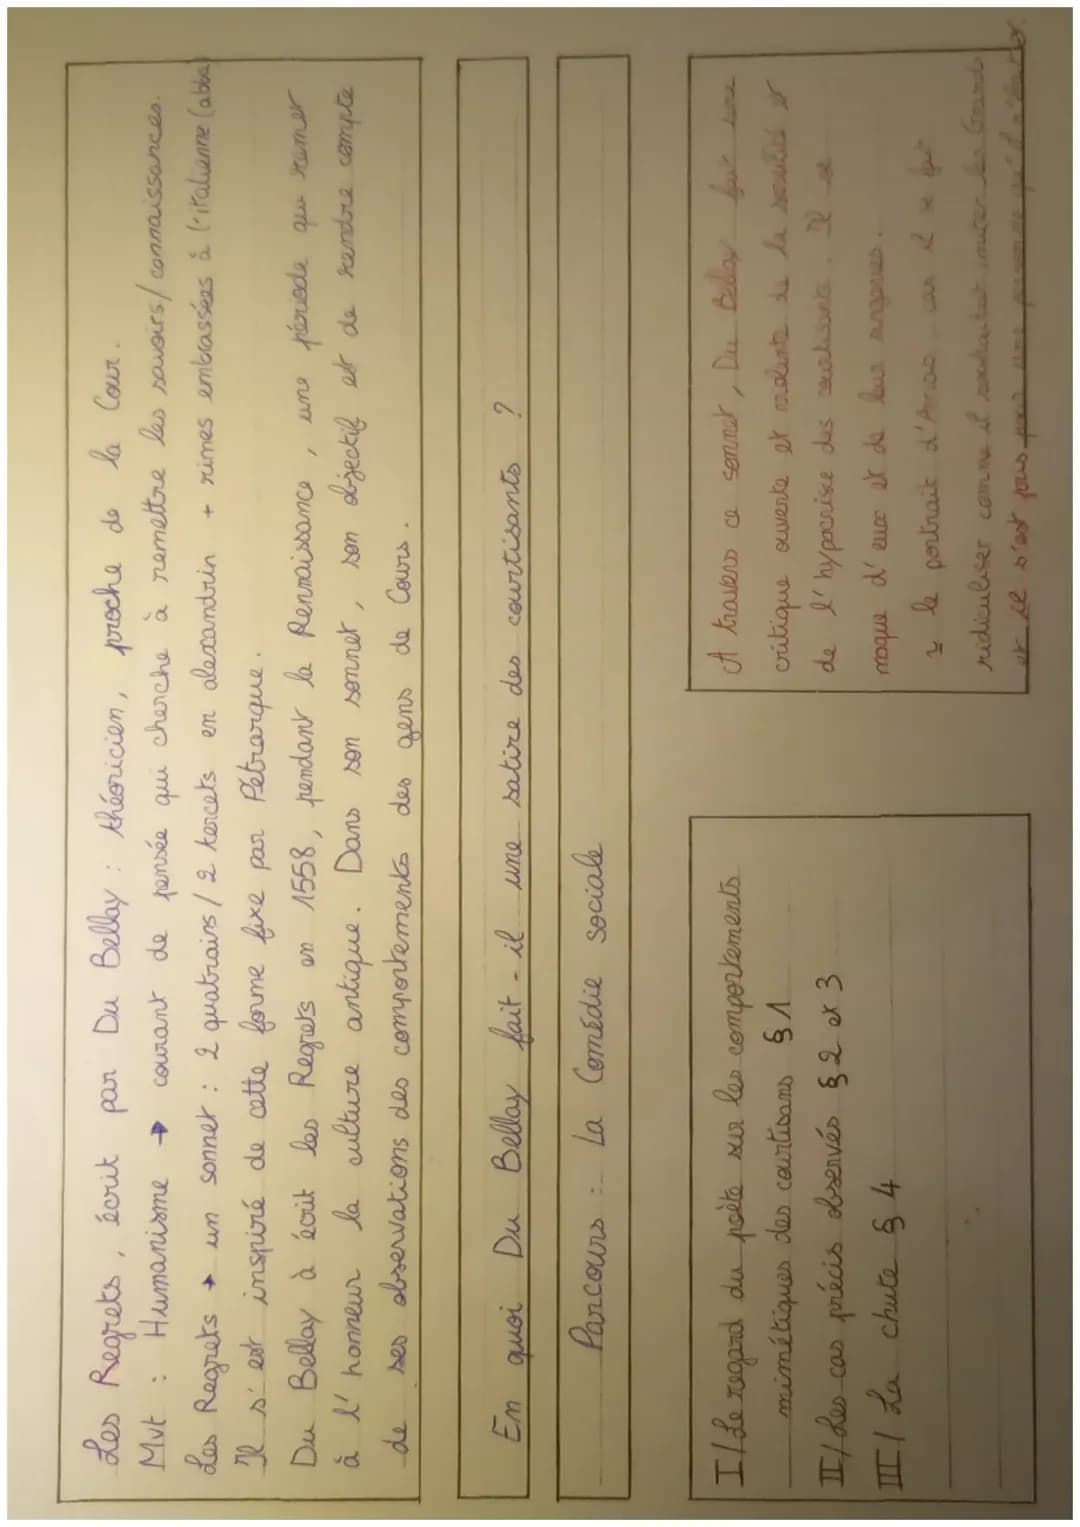 Les Regrets, écrit par Du Bellay : théoricien, proche de la Cour.
Mvt : Humanisme → courant de pensée qui cherche à remettre les savoirs/connaissances.
Les Regrets → un sonnet : 2 quatrains / 2 tercets en alexandrin + rimes embrassées à l'italienne (abba)
Il s'est inspiré de cette forme fixe par Pétrarque.
Du Bellay à écrit les Regrets en 1558, pendant la Rennaissance, une période qui remer
à l'honneur la culture antique. Dans son sonnet, son objectif et de rendre compte
de ses observations des comportements des gens de Cours.
En quoi Du Bellay fait-il une satire des courtisants ?
Parcours : La Comédie sociale
I/ Le regard du poète sur les comportements
mimétiques des courtisans §1
II/ Les cas précis observés §2 et 3
III/ La chute §4
A travers ce sonnet, Du Bellay fait une
critique ouverte et violente de la société et
de l'hypocrisie des courtisants. Il se
moque d'eux et de leur singeries.
le portrait d'Arrias car il se fait
ridiculiser comme il souhaitait imiter les Grands
et ce s'est fais pour une personne qu'il n'